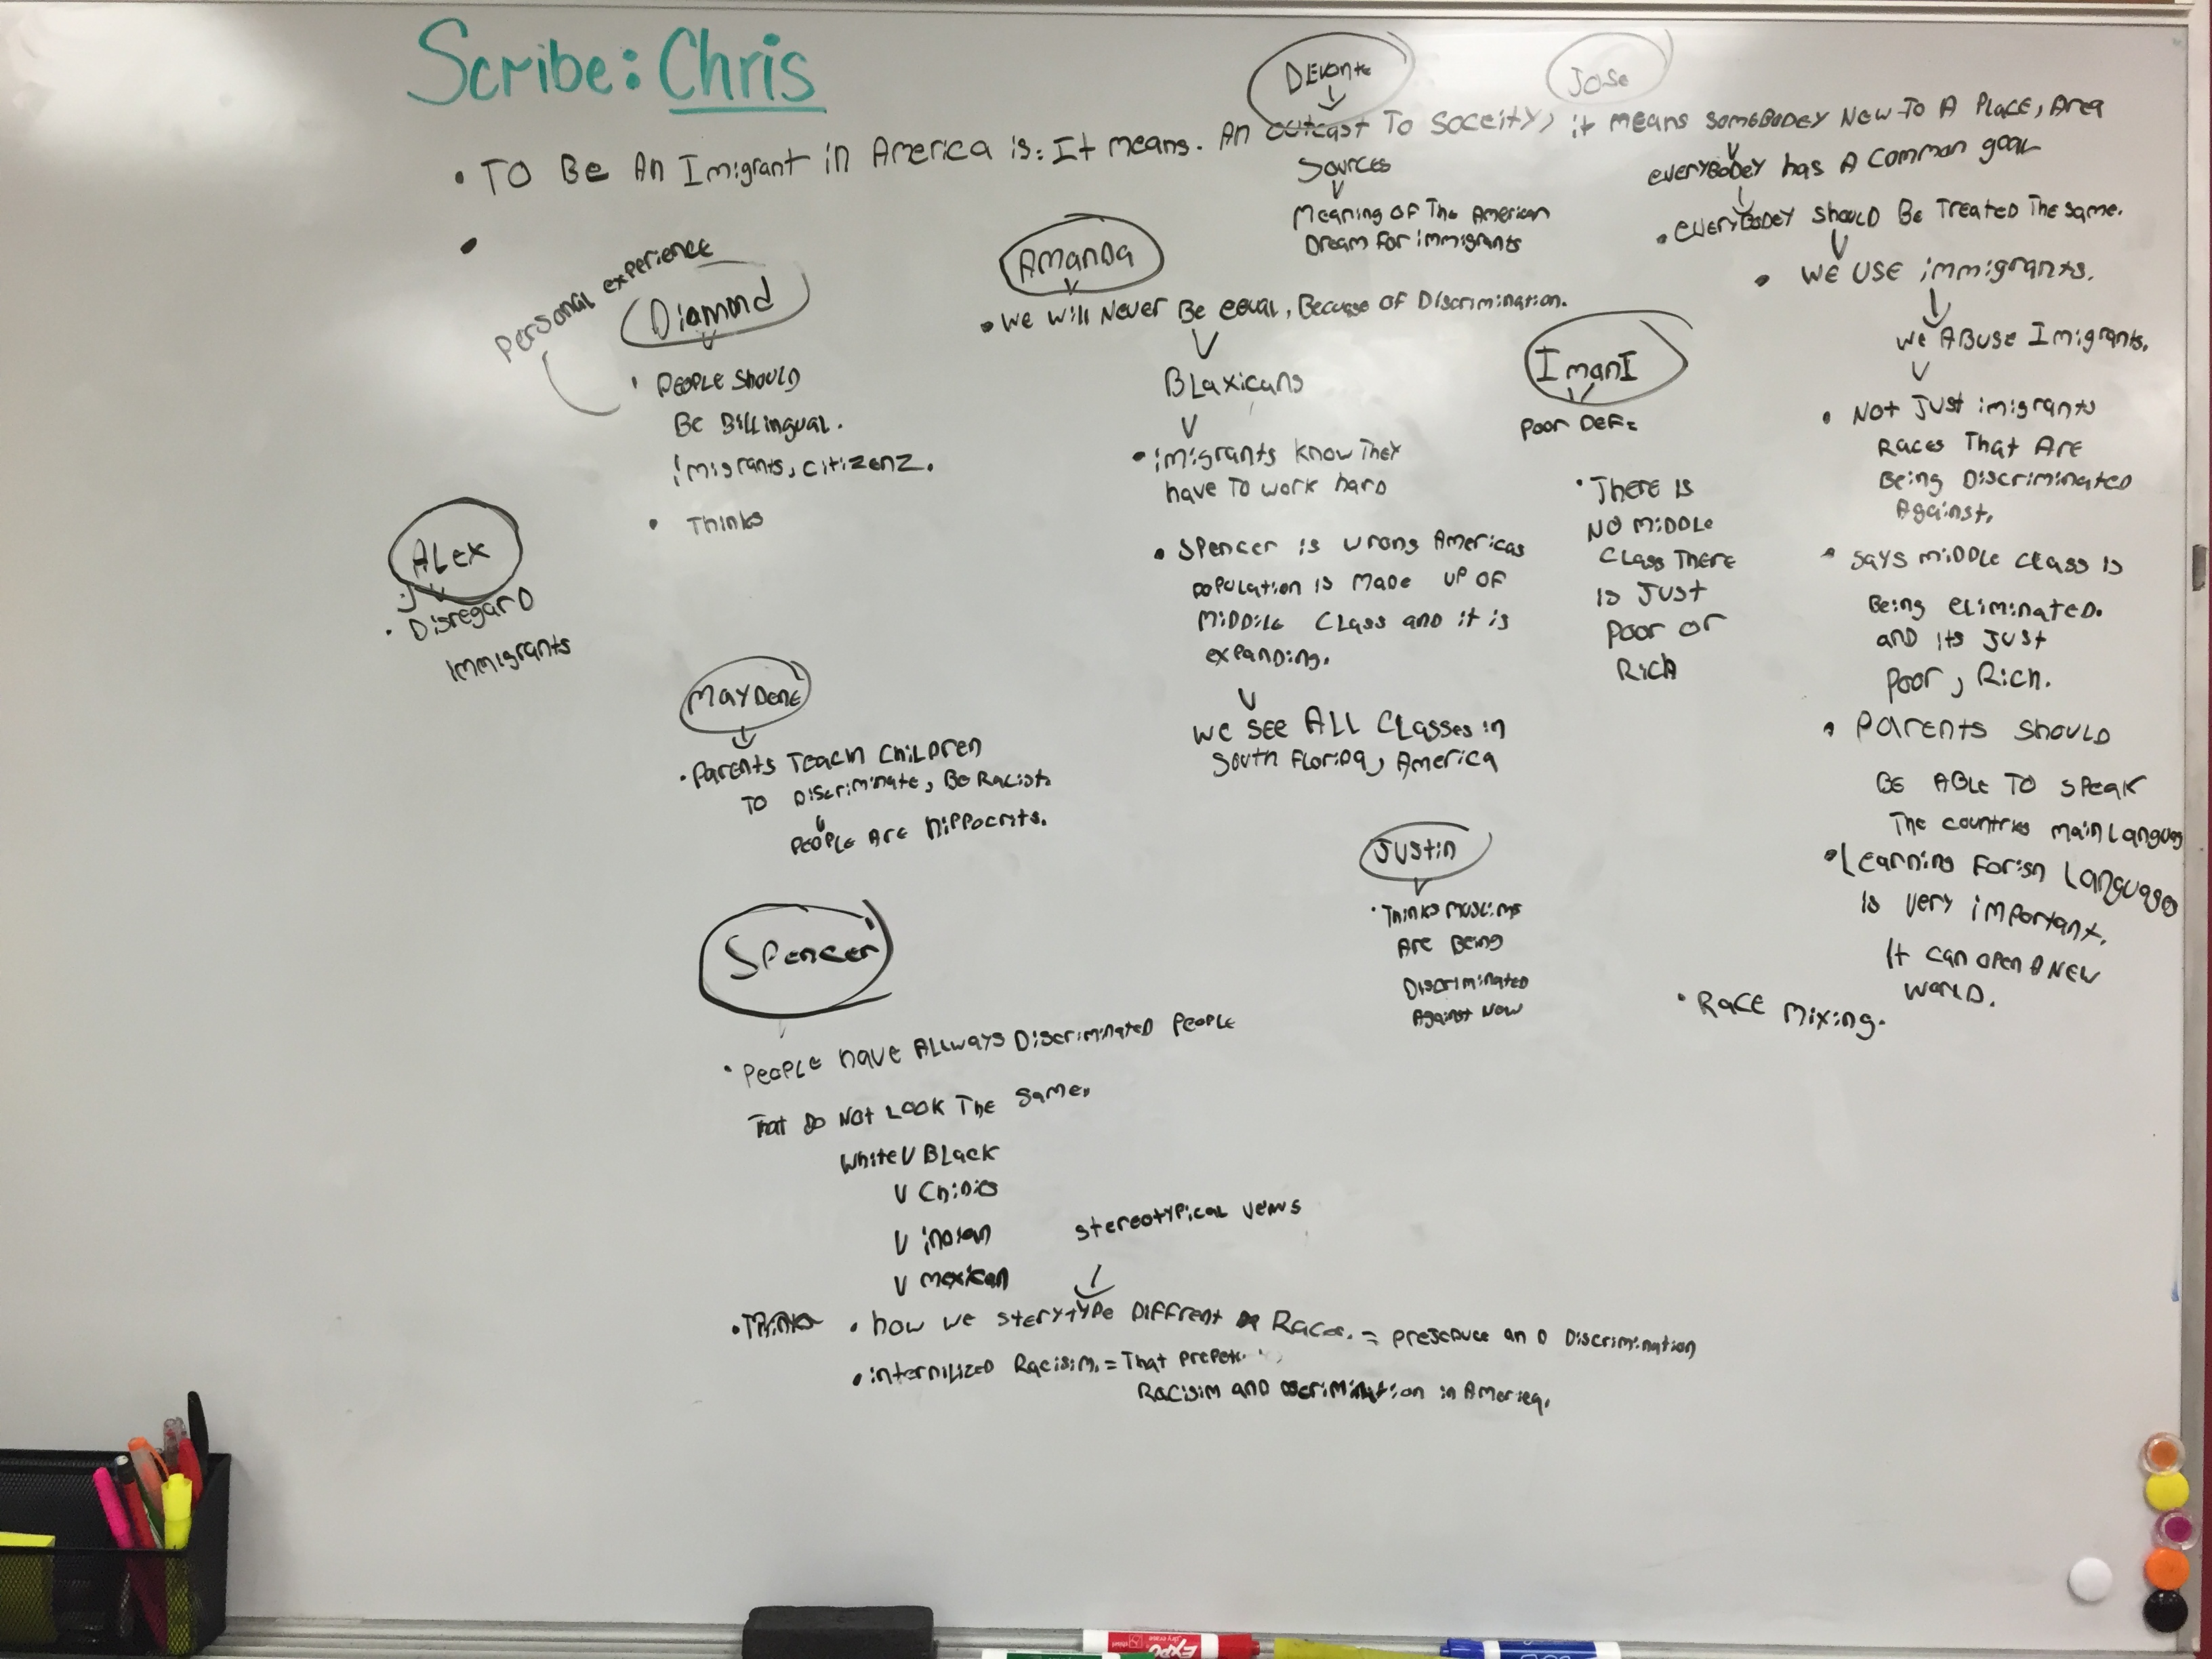 Scribe: Chris
DEvonte
Jose
• TO Be An Imigrant in America is: It means. An outcast To Soceity, it means SomeBoDEY New To A Place, Area
Sources
Meaning OF The American
Dream For immigrants
everyBoDEY has A Common goal
• everyBoDEY should Be Treated The same.
• We USE immigrants.
We ABuse Imigrants.
• Not Just imigrants
Races That Are
Being Discriminated
Against.
• says miDDle class is
Being eliminateD.
anD its Just
Poor, Rich.
• Parents Should
BE ABLE TO SPeak
The countries main
• Learning Forisn Languages
is very important.
It can open A New
World.
• Race Mixing.
•
Personal experience
Diamond
• People ShoulD
Be Billingual.
imigrants, citizenz.
• Thinks
AManDa
• We Will Never Be equal, Because oF Discrimination.
BLaxicans
• imigrants know They
have To work harD
• Spencer is wrong Americas
population is MaDe up oF
MiDDle Class and it is
expanDing.
We see ALL Classes in
South FloriDa, America
ImanI
Poor DEF:
• There is
No MiDDle
Class There
is Just
Poor or
Rich
ALex
• DisregarD
immigrants
MayDene
• Parents Teach ChilDren
To Discriminate, Be Racist.
People Are hippocrits.
Justin
• Thinks Muslims
Are Being
Discriminated
Against Now
Spencer
• People have ALLways DiscriminateD People
That Do Not Look The Same.
White V BLack
V Chinies
V inDian
V mexican
stereotypical veiws
• Thinks • how we sterytype DiFFrent Races. = PrejeDuce anD Discrimination
• internilizeD Racisim. = That
Racisim anD Discrimination in America.
EXPO
dry erase